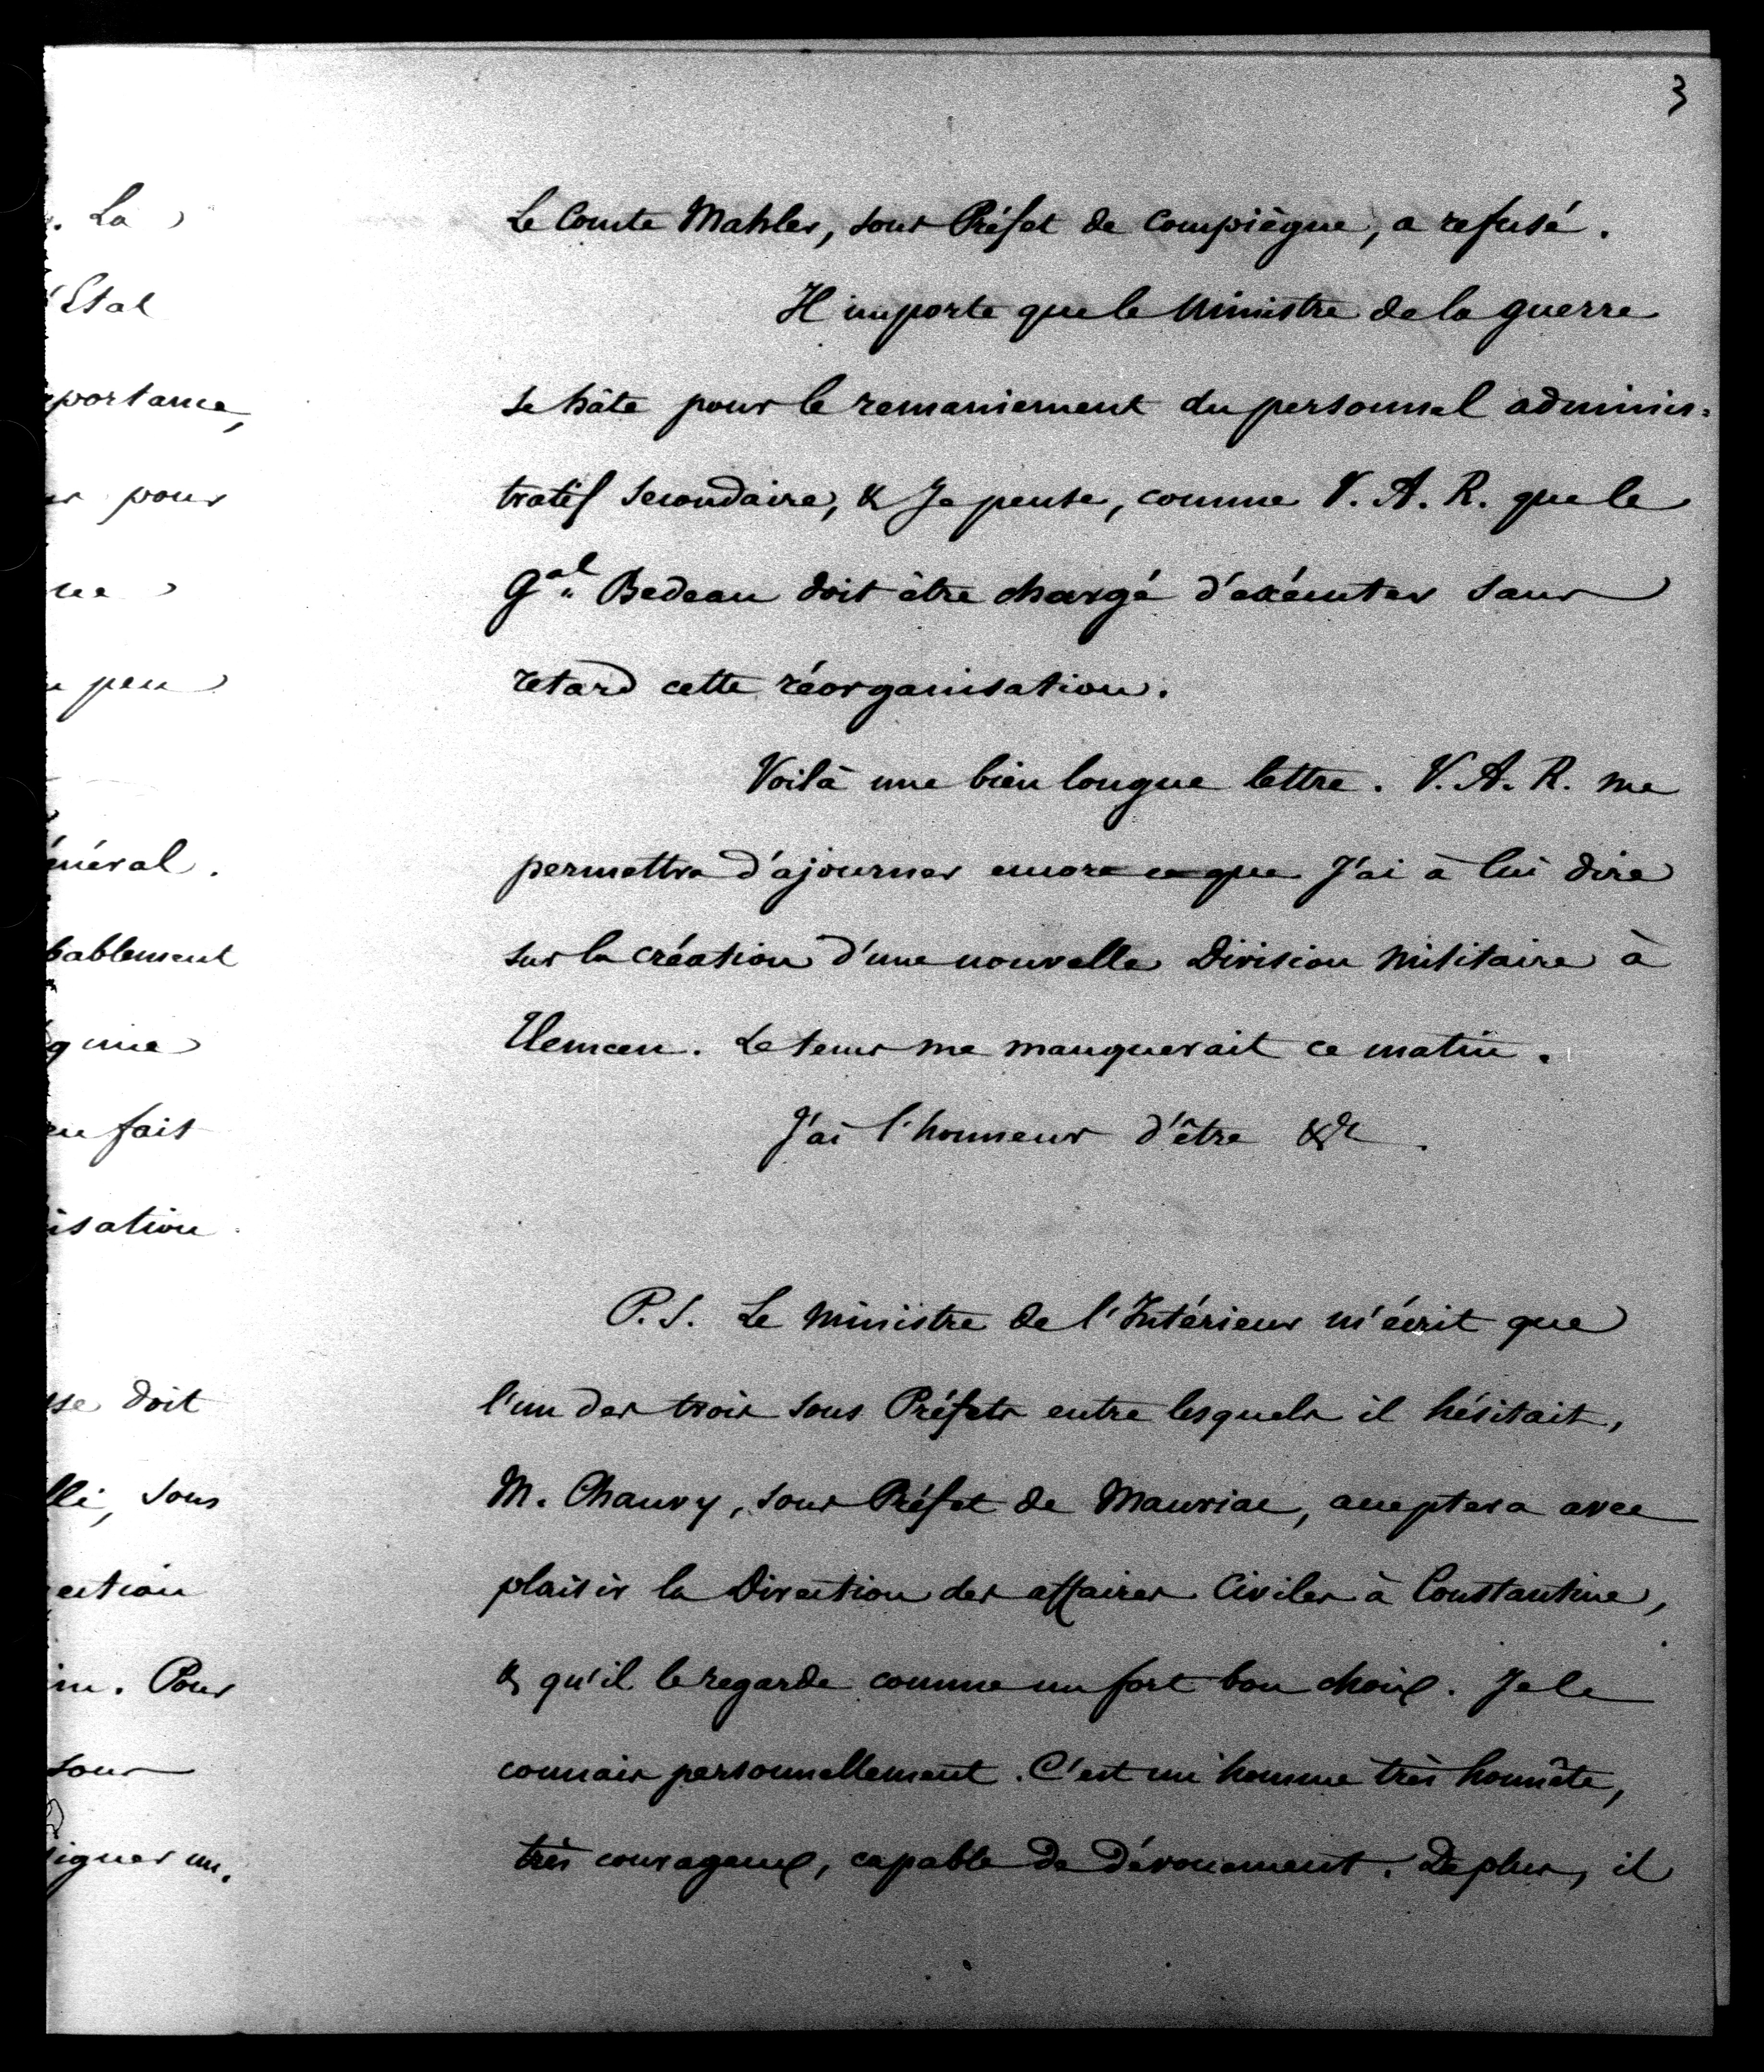 3
Le Comte Mahler, sous Préfet de Compiègne, a refusé.
Il importe que le Ministre de la guerre
se hâte pour le remaniement du personnel adminis-
tratif secondaire, & Je pense, comme V. A. R. que le
Gal Bedeau doit être chargé d'exécuter sans
retard cette réorganisation.
Voilà une bien longue lettre. V. A. R. me
permettra d'ajourner encore ce que J'ai à lui dire
sur la création d'une nouvelle Division Militaire à
Tlemcen. Le tems me manquerait ce matin.
J'ai l'honneur d'être &c.
P.S. Le Ministre de l'Intérieur m'écrit que
l'un des trois sous Préfets entre lesquels il hésitait,
M. Chauvy, sous Préfet de Mauriac, acceptera avec
plaisir la Direction des affaires Civiles à Constantine,
& qu'il le regarde comme un fort bon choix. Je le
connais personnellement. C'est un homme très honnête,
très courageux, capable de dévouement. De plus, il
. La
'Etat
portance,
pour
peu
énéral.
bablement
en fait
isation
doit
sous
. Pour
sous
igner un.